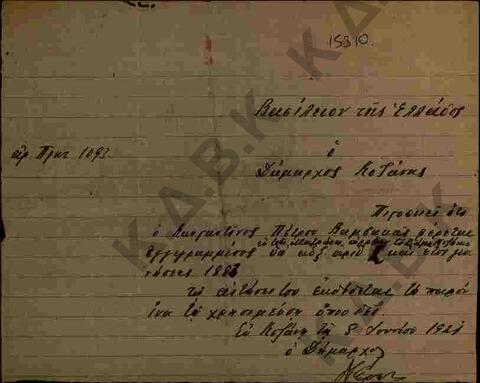 15910.
Βασίλειον της Ελλάδος
αρ. Πρωτ. 1093.
ο
Δήμαρχος Κοζάνης
Πιστοποιεί ότι
ο Κωνσταντίνος Πέτρου Βαμβακάς φέρεται
εγγεγραμμένος υπ' αύξ. αριθ. και έτος γεν
νήσεως 1883
τη αιτήσει του εκδίδεται το παρόν
ίνα τω χρησιμεύση όπου δει.
Εν Κοζάνη τη 8 Ιουνίου 192
ο Δήμαρχος
Κ.Δ.Β.Κ